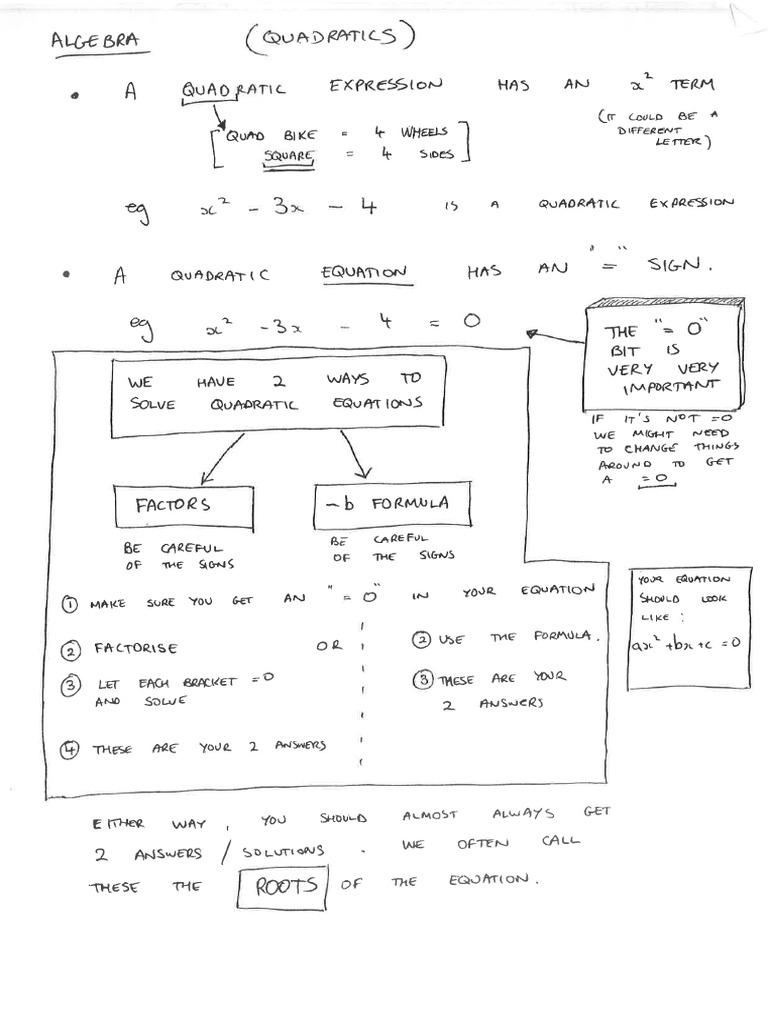 ALGEBRA (QUADRATICS)
• A QUADRATIC EXPRESSION HAS AN x² TERM
(IT COULD BE A
DIFFERENT
LETTER)
[QUAD BIKE = 4 WHEELS
SQUARE = 4 SIDES]
eg x² - 3x - 4 IS A QUADRATIC EXPRESSION
• A QUADRATIC EQUATION HAS AN "=" SIGN.
eg x² - 3x - 4 = 0
THE "= 0"
BIT IS
VERY VERY
IMPORTANT
IF IT'S NOT =0
WE MIGHT NEED
TO CHANGE THINGS
AROUND TO GET
A =0
WE HAVE 2 WAYS TO
SOLVE QUADRATIC EQUATIONS
FACTORS
BE CAREFUL
OF THE SIGNS
-b FORMULA
BE CAREFUL
OF THE SIGNS
① MAKE SURE YOU GET AN "= 0" IN YOUR EQUATION
② FACTORISE OR ② USE THE FORMULA.
③ LET EACH BRACKET =0
AND SOLVE
③ THESE ARE YOUR
2 ANSWERS
④ THESE ARE YOUR 2 ANSWERS
YOUR EQUATION
SHOULD LOOK
LIKE:
ax² + bx + c = 0
EITHER WAY, YOU SHOULD ALMOST ALWAYS GET
2 ANSWERS / SOLUTIONS. WE OFTEN CALL
THESE THE ROOTS OF THE EQUATION.